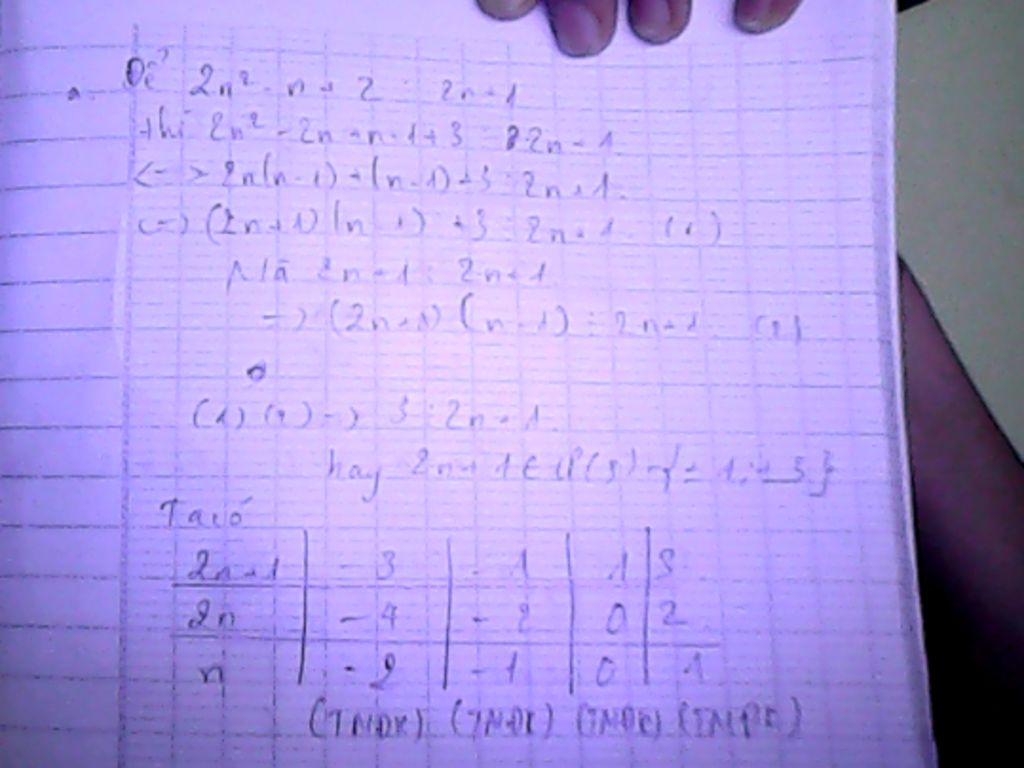 a. Để 2n² - n + 2 ⋮ 2n+1
thì 2n² - 2n + n - 1 + 3 ⋮ 2n+1
<-> 2n(n-1) + (n-1) + 3 ⋮ 2n+1.
<-> (2n+1)(n-1) + 3 ⋮ 2n+1 (1)
Mà 2n+1 ⋮ 2n+1
-> (2n+1)(n-1) ⋮ 2n+1 (2)
(1)(2) -> 3 ⋮ 2n+1.
hay 2n+1 ∈ Ư(3) = {±1; ±3}
Ta có
2n+1 | -3 | -1 | 1 | 3
2n | -4 | -2 | 0 | 2
n | -2 | -1 | 0 | 1
(TMĐK) (TMĐK) (TMĐK) (TMĐK)